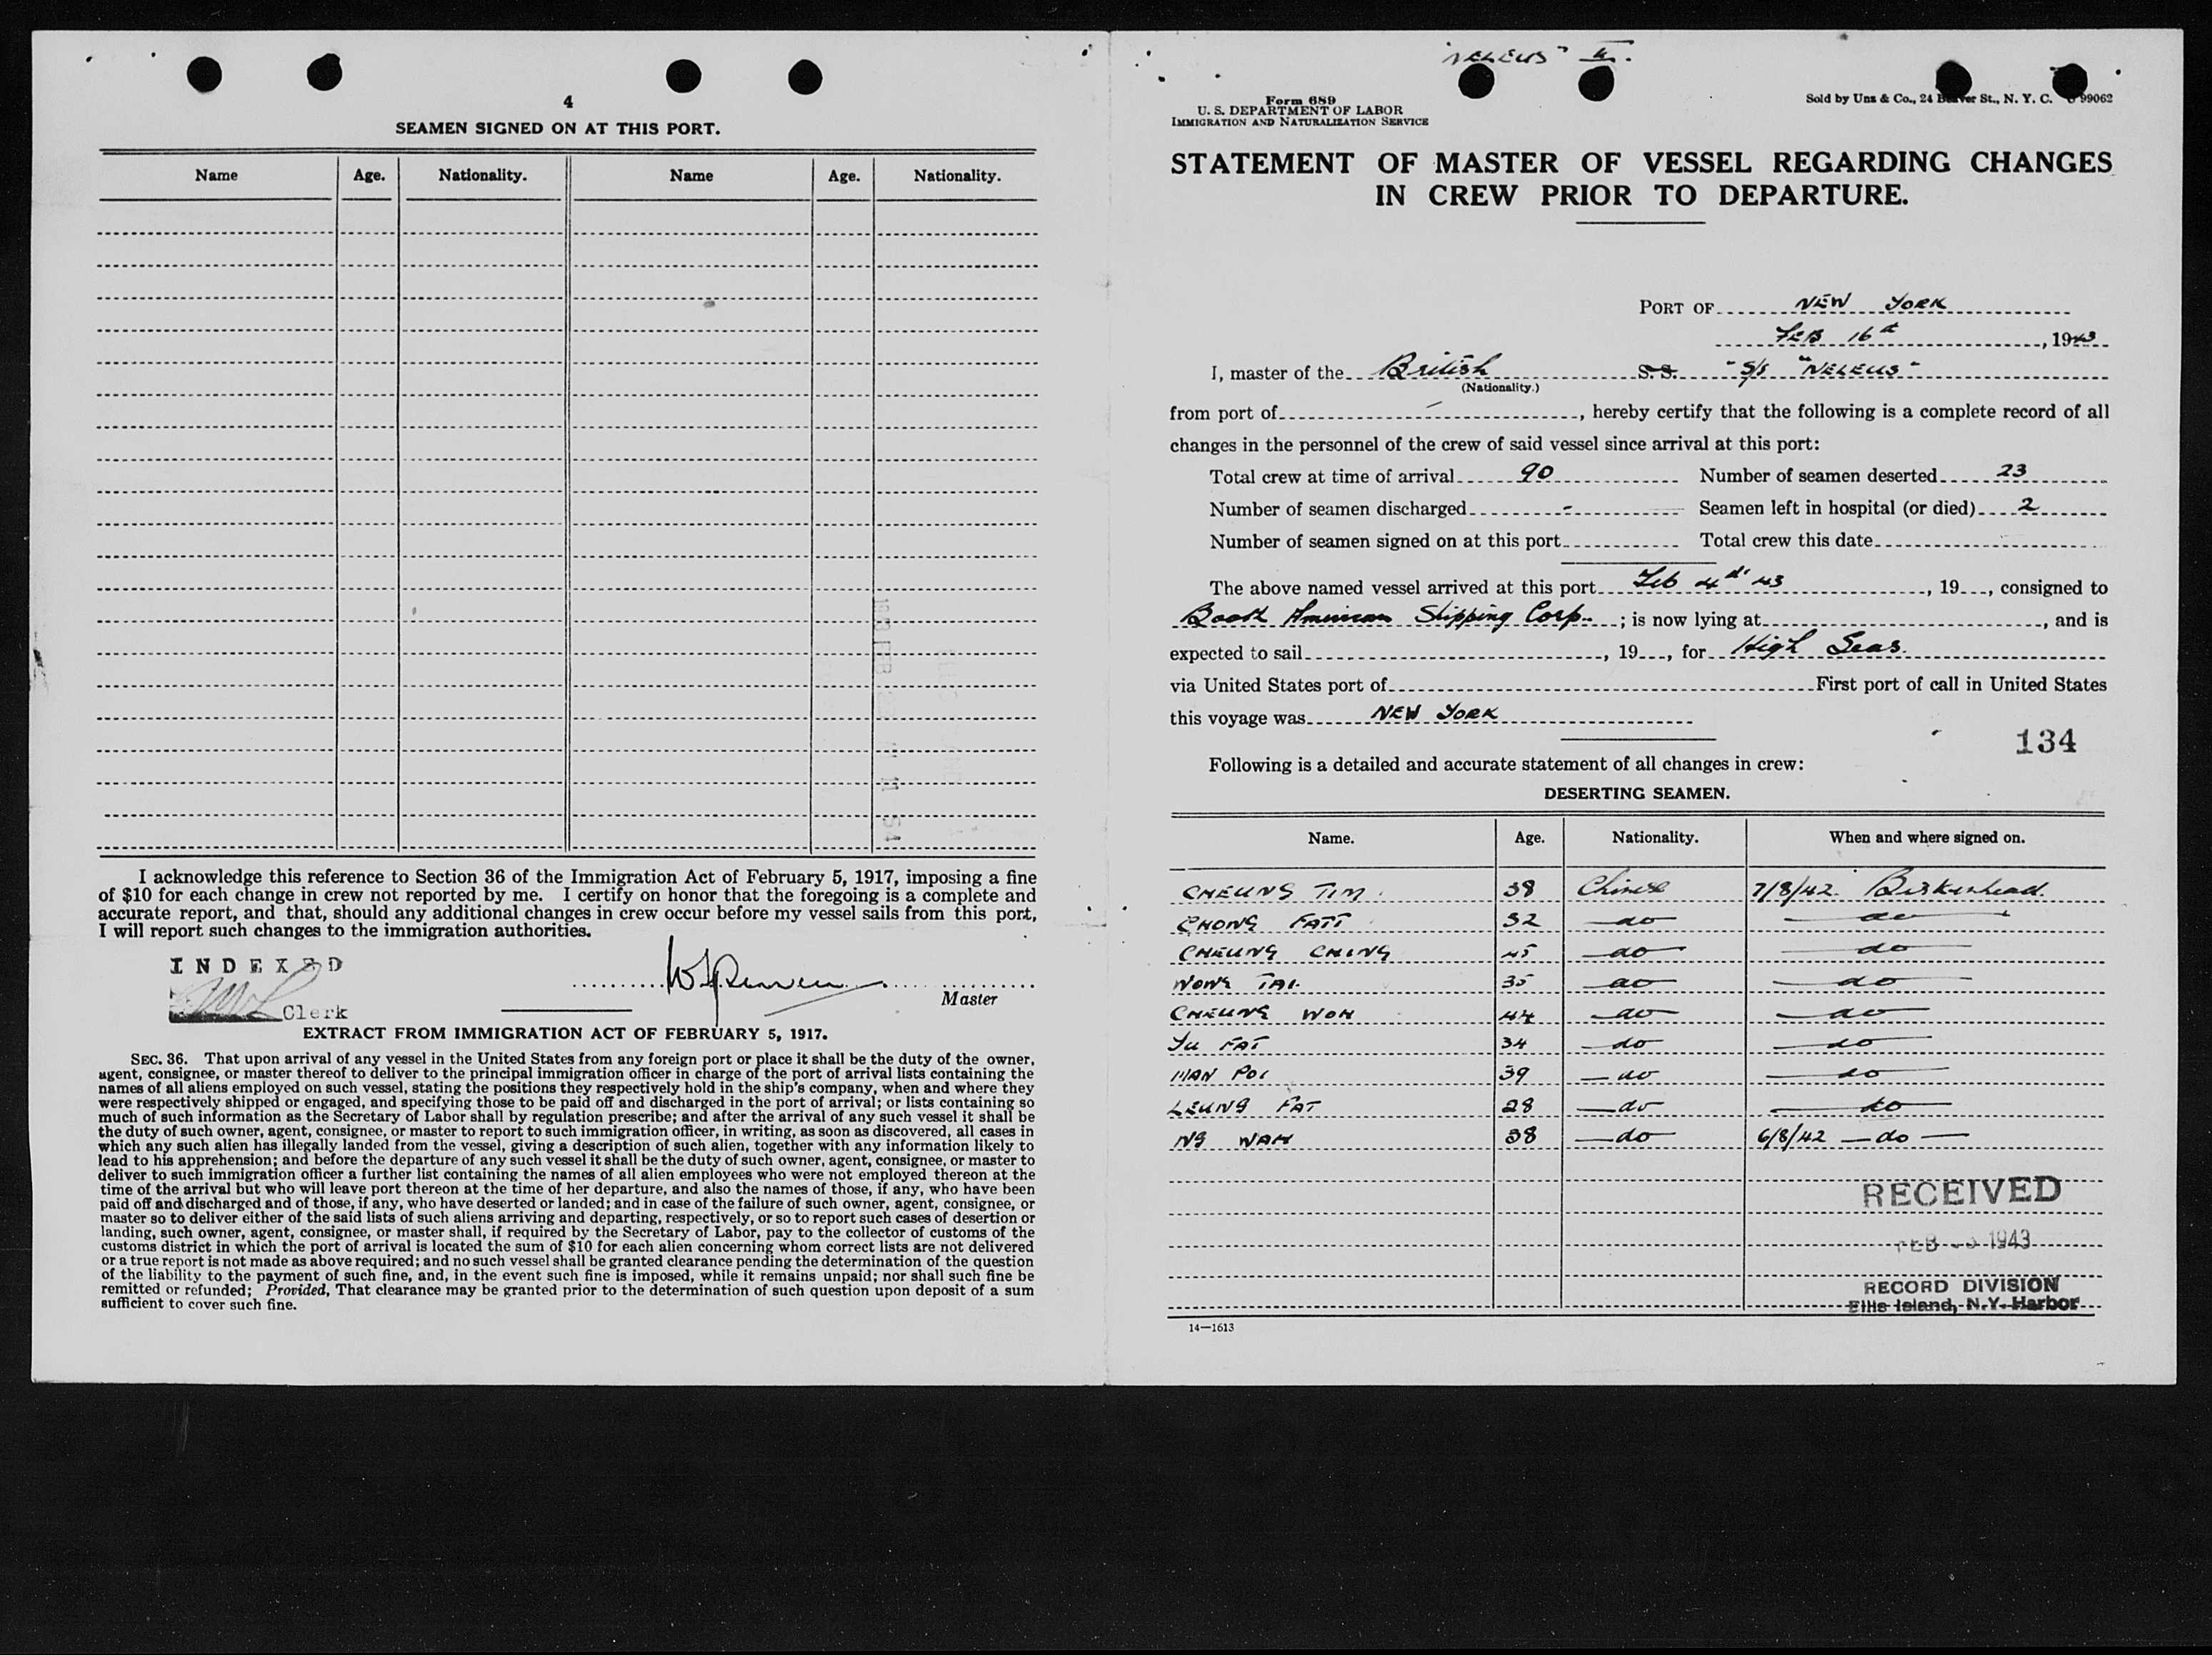 4
SEAMEN SIGNED ON AT THIS PORT.
Name Age. Nationality. Name Age. Nationality.
I acknowledge this reference to Section 36 of the Immigration Act of February 5, 1917, imposing a fine
of $10 for each change in crew not reported by me. I certify on honor that the foregoing is a complete and
accurate report, and that, should any additional changes in crew occur before my vessel sails from this port,
I will report such changes to the immigration authorities.
INDEXED
Clerk
Master
EXTRACT FROM IMMIGRATION ACT OF FEBRUARY 5, 1917.
SEC. 36. That upon arrival of any vessel in the United States from any foreign port or place it shall be the duty of the owner,
agent, consignee, or master thereof to deliver to the principal immigration officer in charge of the port of arrival lists containing the
names of all aliens employed on such vessel, stating the positions they respectively hold in the ship's company, when and where they
were respectively shipped or engaged, and specifying those to be paid off and discharged in the port of arrival; or lists containing so
much of such information as the Secretary of Labor shall by regulation prescribe; and after the arrival of any such vessel it shall be
the duty of such owner, agent, consignee, or master to report to such immigration officer, in writing, as soon as discovered, all cases in
which any such alien has illegally landed from the vessel, giving a description of such alien, together with any information likely to
lead to his apprehension; and before the departure of any such vessel it shall be the duty of such owner, agent, consignee, or master to
deliver to such immigration officer a further list containing the names of all alien employees who were not employed thereon at the
time of the arrival but who will leave port thereon at the time of her departure, and also the names of those, if any, who have been
paid off and discharged and of those, if any, who have deserted or landed; and in case of the failure of such owner, agent, consignee, or
master so to deliver either of the said lists of such aliens arriving and departing, respectively, or so to report such cases of desertion or
landing, such owner, agent, consignee, or master shall, if required by the Secretary of Labor, pay to the collector of customs of the
customs district in which the port of arrival is located the sum of $10 for each alien concerning whom correct lists are not delivered
or a true report is not made as above required; and no such vessel shall be granted clearance pending the determination of the question
of the liability to the payment of such fine, and, in the event such fine is imposed, while it remains unpaid; nor shall such fine be
remitted or refunded; Provided, That clearance may be granted prior to the determination of such question upon deposit of a sum
sufficient to cover such fine.
"NELEUS" II.
Form 689
U. S. DEPARTMENT OF LABOR
IMMIGRATION AND NATURALIZATION SERVICE
Sold by Unz & Co., 24 Beaver St., N. Y. C. 99062
STATEMENT OF MASTER OF VESSEL REGARDING CHANGES
IN CREW PRIOR TO DEPARTURE.
PORT OF NEW YORK
FEB 16th, 1943
I, master of the British S.S. "S/S "NELEUS"
(Nationality.)
from port of -, hereby certify that the following is a complete record of all
changes in the personnel of the crew of said vessel since arrival at this port:
Total crew at time of arrival 90 Number of seamen deserted 23
Number of seamen discharged - Seamen left in hospital (or died) 2
Number of seamen signed on at this port Total crew this date
The above named vessel arrived at this port Feb 4th 43, 19 , consigned to
Booth American Shipping Corp.; is now lying at , and is
expected to sail , 19 , for High Seas.
via United States port of First port of call in United States
this voyage was NEW YORK
134
Following is a detailed and accurate statement of all changes in crew:
DESERTING SEAMEN.
Name. Age. Nationality. When and where signed on.
CHEUNG TIM. 38 Chinese 7/8/42. Birkenhead.
CHONG FATT 32 do do
CHEUNG CHING 45 do do
WONG TAI. 35 do do
CHEUNG WOH 44 do do
YU FAT 34 do do
MAN POI 39 do do
LEUNG FAT 28 do do
NG WAH 38 do 6/8/42 do
RECEIVED
FEB 1943
RECORD DIVISION
Ellis Island, N.Y. Harbor
14—1613